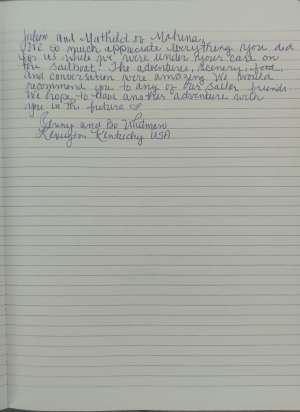 and Mathild of Mahina,
We so much appreciate everything you did
for us while we were under your care on
the sailboat. The adventures, scenery, food,
and conversation were amazing. We would
recommend you to any of our sailor friends.
We hope to have another adventure with
you in the future
and Bo Whitmer
Kentucky USA